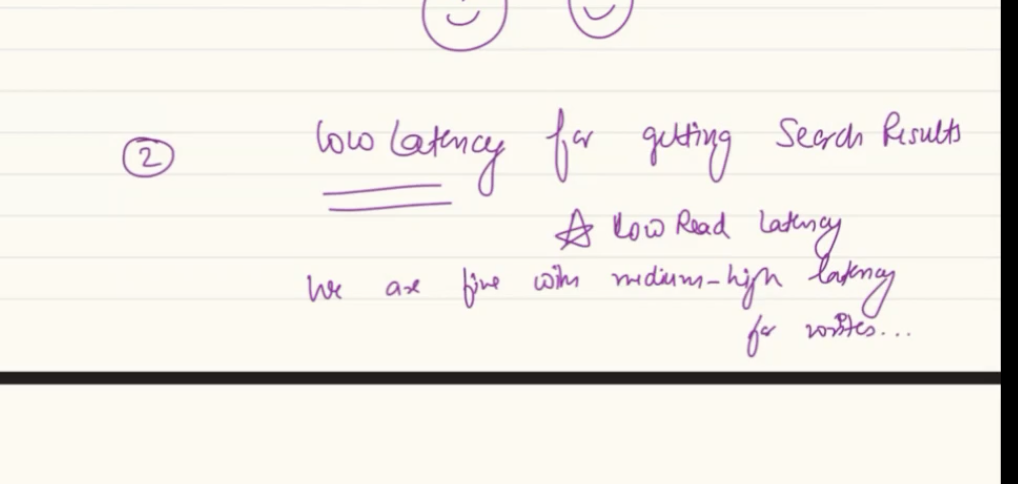 ② low latency for getting Search Results
☆ Low Read latency
We are fine with medium-high latency
for writes...